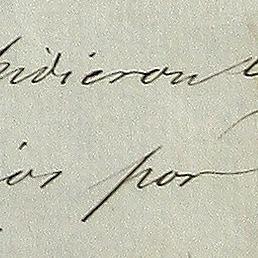 pidieron
ios por